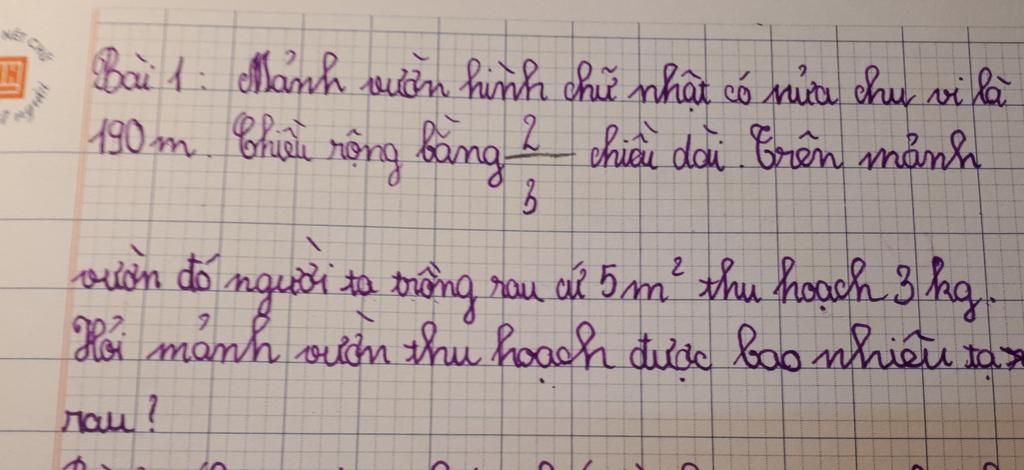 NÉT CHỮ
Bài 1: Mảnh vườn hình chữ nhật có nửa chu vi là
190m. Chiều rộng bằng 2/3 chiều dài. Trên mảnh
vườn đó người ta trồng rau cứ 5m² thu hoạch 3kg.
Hỏi mảnh vườn thu hoạch được bao nhiêu tạ
rau?